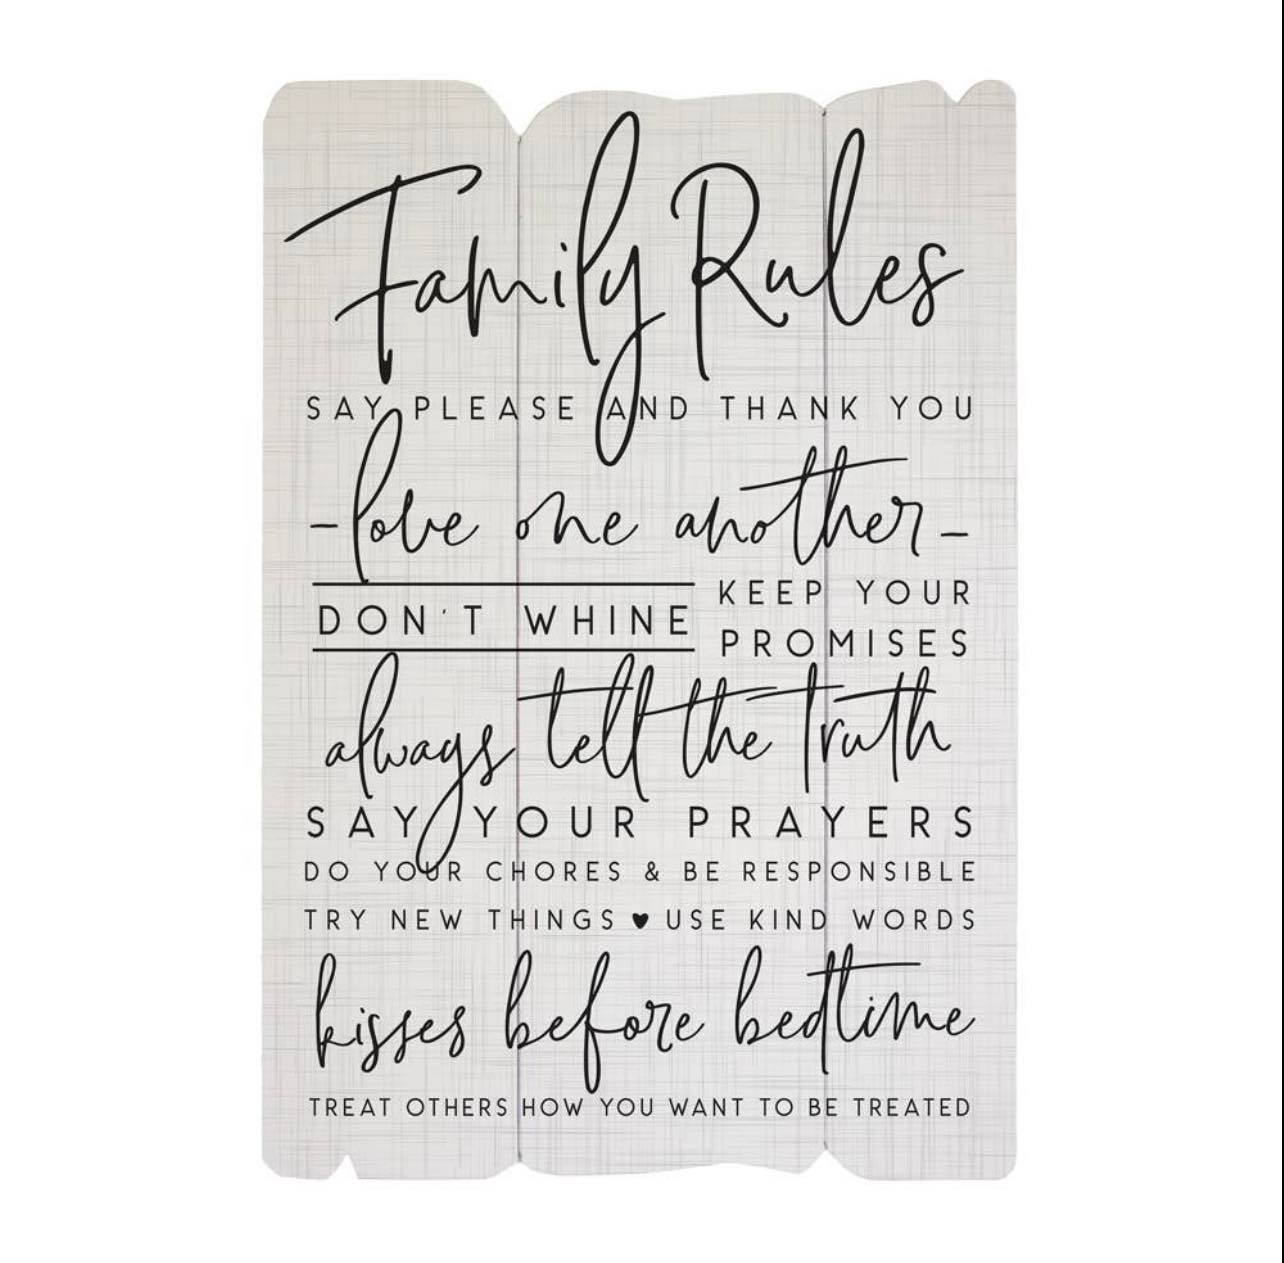 Family Rules
SAY PLEASE AND THANK YOU
-love one another-
DON'T WHINE
KEEP YOUR
PROMISES
always tell the truth
SAY YOUR PRAYERS
DO YOUR CHORES & BE RESPONSIBLE
TRY NEW THINGS ♥ USE KIND WORDS
kisses before bedtime
TREAT OTHERS HOW YOU WANT TO BE TREATED